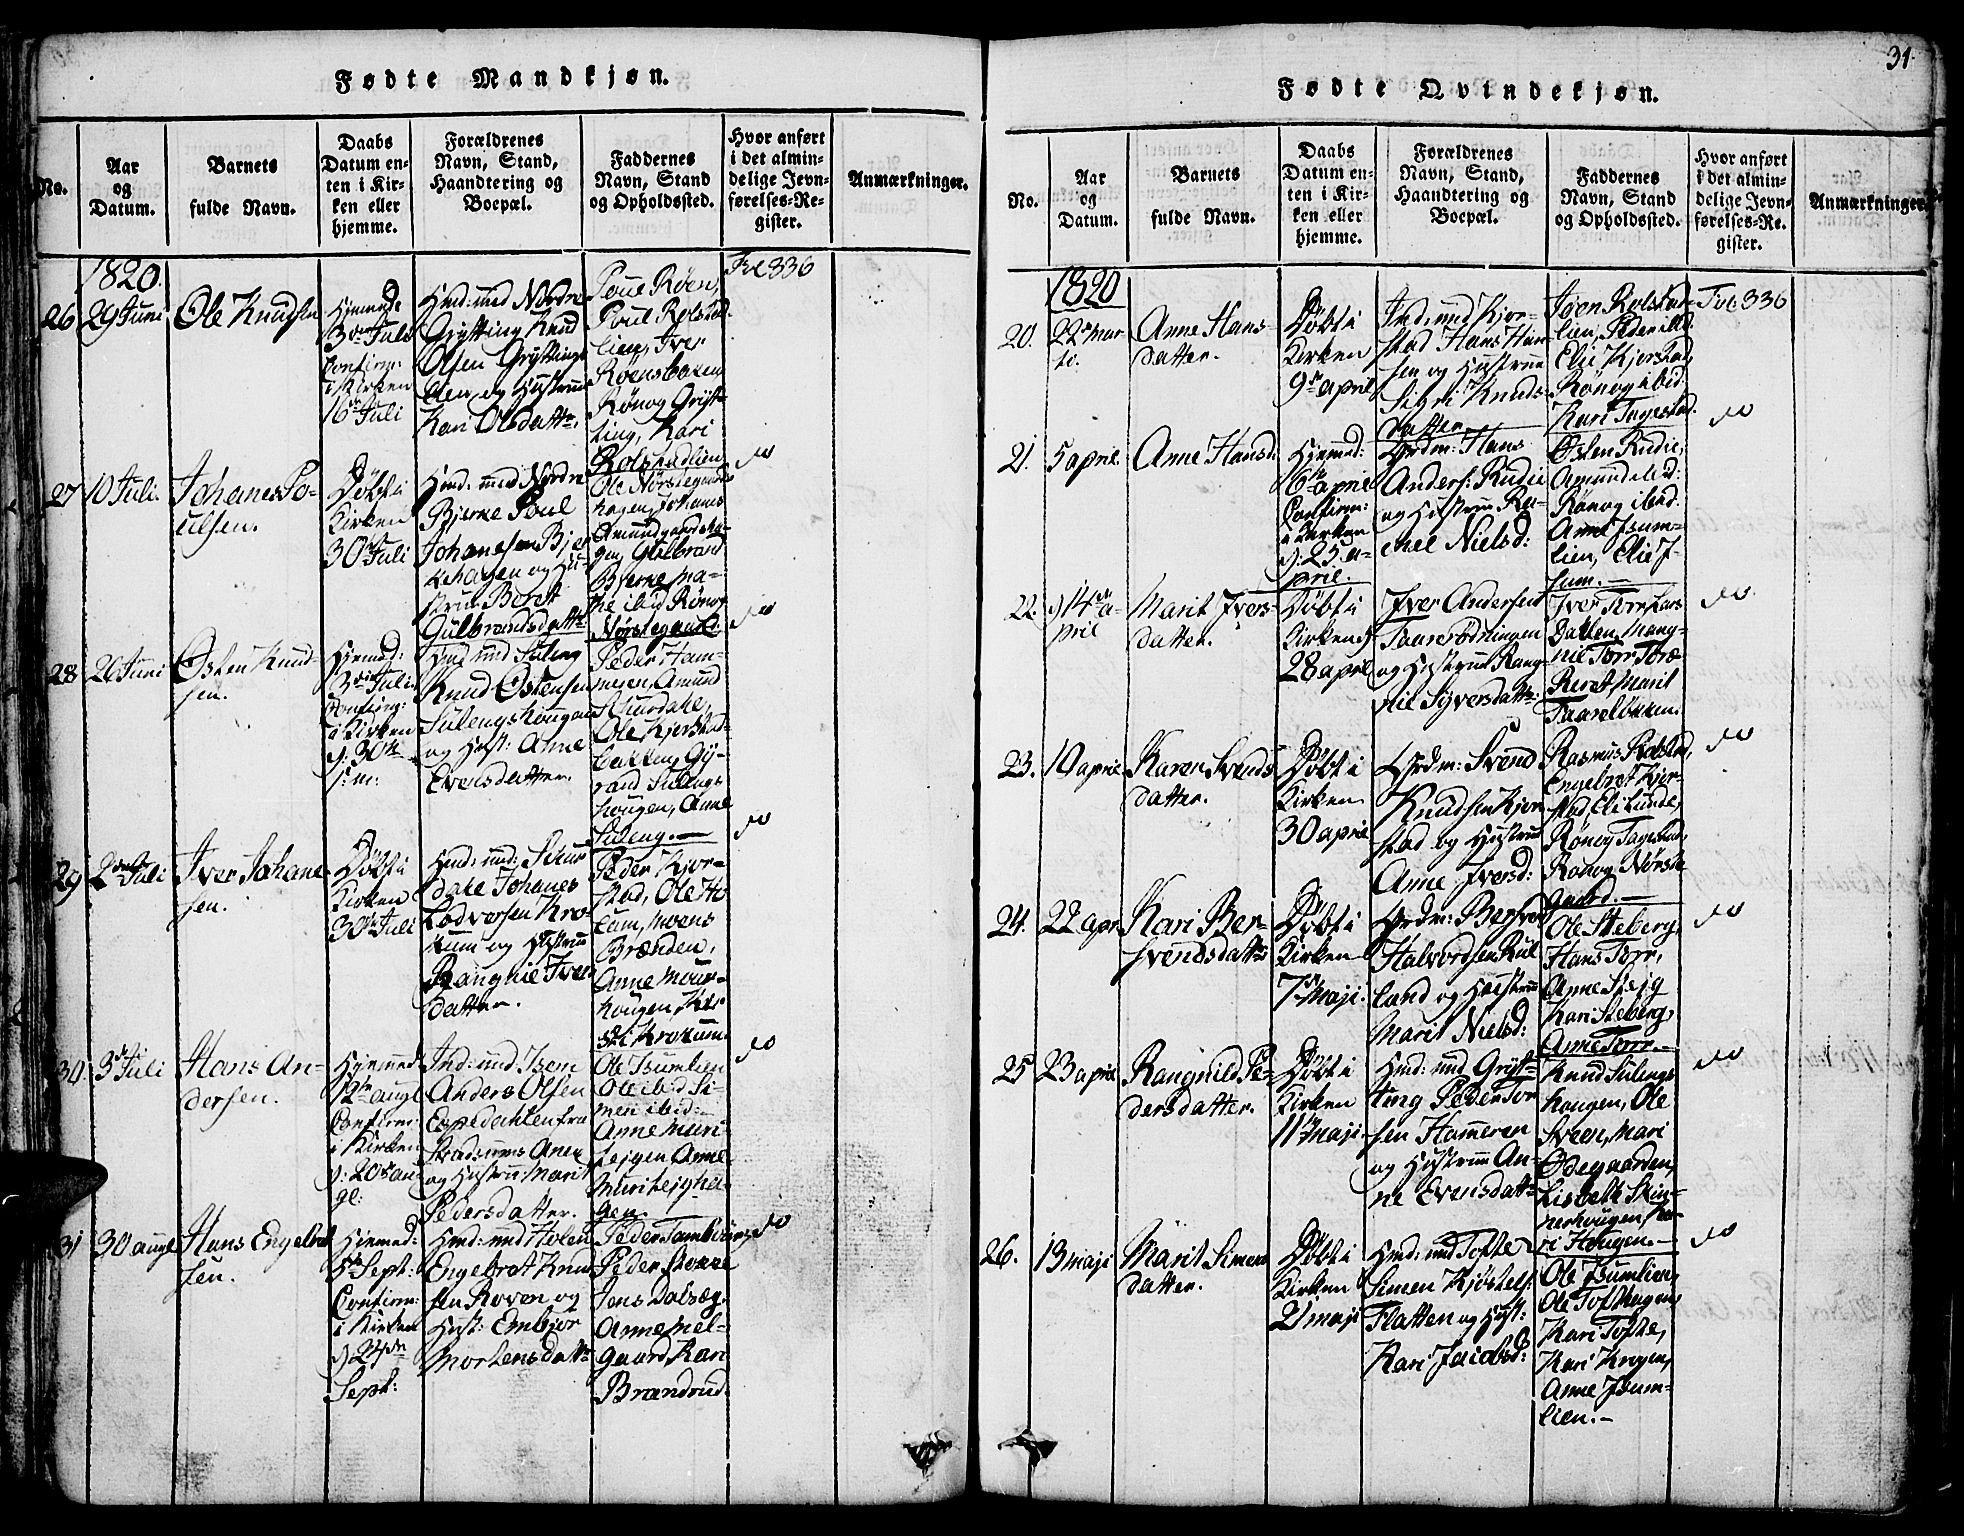 Fødte Mandkjøn.
No.
Aar
og
Datum.
Barnets
fulde Navn.
Daabs
Datum en-
ten i Kir-
ken eller
hjemme.
Forældrenes
Navn, Stand,
Haandtering og
Boepæl.
Faddernes
Navn, Stand
og Opholdssted.
Hvor anført
i det almin-
delige Jevn-
førelses-Re-
gister.
Anmærkninger.
1820.
26
29 Juni
Ole Knudsen
Hjemmed
3die Juli
Confirm:
i Kirken
16de Juli
Nordre
Grytting Knud
Olsen Gryttings
og Hustrue
Kari Olsdattr.
Poul Røen,
Poul Rolstad
lien, Iver
Roensbaken
Rønog Gryt-
ting, Kari
Rolstadlien
Fol 336
27
10 Juli
Johanes Po-
ulsen.
Døbt i
Kirken
30de Juli
Nordre
Bjerke Poul
Johanesen Bjer
kehagen og Hu-
strue Beret
Gulbrandsdattr
Ole Nørstegaards
hagen, Johanes
Amundgaardsha-
gen, Gulbrand
Bjerke, Ma-
rie ibid Rønog
Nørstegaard.
do
28
26 Juni
Østen Knud-
sen.
Hjemed:
3die Juli
Confirm:
i Kirken
d: 30te
s: m:
Suleng
Knud Østensen
Sulengshougen
og Hust: Anne
Evensdatter.
Peder Ham-
meren, Amund
Skurdahl,
Ole Kjørstad-
bakken, Gy-
rand Sulengs-
hougen, Anne
Suleng.—
do
29
2den Juli
Iver Johane-
sen.
Døbt i
Kirken
30de Juli
Skur
dahl Johanes
Lodversen Kro-
kum og Hustrue
Rangnie Ivers
datter.
Peder Kjør-
stad, Ole Ho
lum, Moens
Brænden,
Anne Mour-
hougen, Kir
sti Krokum.
do
30
3de Juli
Hans An-
dersen.
Hjemmed
12te augl
Confirm:
i Kirken
d: 20de au-
gl:
Ind: und Isem
Anders Olsen
og Hustrue Marit
Pedersdatter.
Ole Isumlien
Ole ibid Si-
men ibid:
Anne Muri-
tejgen Anne
Muritejgha-
gen.
do
31
30 augl
Hans Engelbret
sen.
Hjemed:
5te Sept:
Confirm:
i Kirken
d: 24de
Sept:
Hmd: und Holen
Engebret Knud
sen Roven og
Hust: Embjør
Mortensdattr
Peder Skottte
Jens Dalsæg
Anne Mel-
gaard, Kari
Brandvud
do
31.
Fødte Qvindekjøn.
No.
Aar
og
Datum.
Barnets
fulde Navn.
Daabs
Datum en-
ten i Kir-
ken eller
hjemme.
Forældrenes
Navn, Stand,
Haandtering og
Boepæl.
Faddernes
Navn, Stand
og Opholdssted.
Hvor anført
i det almin-
delige Jevn-
førelses-Re-
gister.
Anmærkninger.
1820
20.
22de Mar-
ti.
Anne Hans
datter.
Døbt i
Kirken
9de april
Ind: und Kjør-
stad Hans Han
sen og Hustrue
Sigri Knuds-
datter
Joen Rolstad-
lien, Peder ibid:
Elie Kjørstad,
Rønog ibid:
Kari Tagestad.
Fol: 336
21.
5 april
Anne Hansd:
Hjemmed:
6te april
Confirm:
i Kirken
d: 23: a-
pril.
Grdm: Hans
Anders: Rudie
og Hustrue Ra-
chel Nielsd:
Østen Rudie,
Amund ibid:
Rønog ibid:
Anne Isum-
lien, Elie I-
sum.—
do
22.
d: 14de a-
pril
Marit Ivers-
datter.
Døbt i
Kirken d
28 april
Iver Andersen
og Hustrue Rang-
nie Syversdattr:
Iver Torrhars
Datter Mang-
nie Torr Tore
Beret Marit
do
23.
10 april
Karen Svends
datter.
Døbt i
Kirken
30 april
Grdm: Svend
Knudsen Kjør
stad og Hustrue
Anne Iversd:
Rasmus Rolstad,
Engebret Kjør-
stad, Eli Lunde,
Rønog Tagestad,
Rønog Nørste
gaard.—
do
24.
22 apr
Kari Ber-
svendsdattr
Døbt i
Kirken
7de Maji.
Grdm: Bersvend
Halvordsen Rul
land og Hustrue
Marit Nielsd:
Ole Steberg,
Hans Torr,
Anne Stejg
Kari Steberg,
Anne Torr.—
do
25
23 april
Rangnild Pe-
dersdatter.
Døbt i
Kirken
11te Maji
Hmd: und Gryt-
ting Peder Tor
sen Hameren
og Hustrue An-
ne Evensdattr
Knud Sulengs
hougen, Ole
Sveen, Mari
Ødegaarden,
Lisbeth Skin-
nerhougen, Ka-
ri Hougen.—
do
26.
13 maji
Marit Simens
datter.
Døbt i
Kirken
21 maji
Hmd: und Tofte
Simen Kjøstels:
Flatten og Hust:
Kari Jacobsd:
Ole Isumlien,
Ole Tofthagen,
Kari Tofte,
Kari Krogen,
Anne Isum-
lien.—
do